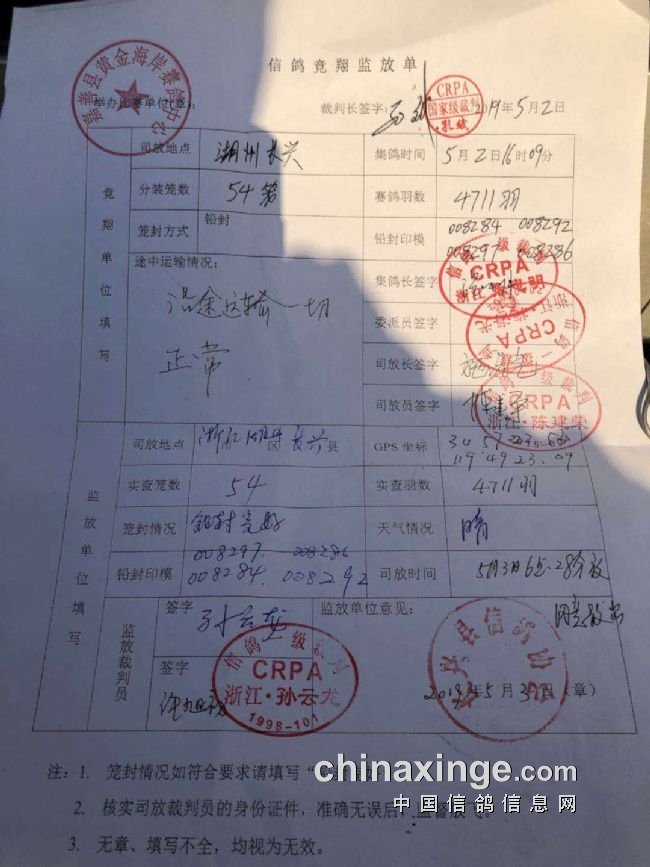 信鸽竞翔监放单
嘉善县黄金海岸赛鸽中心
举办比赛单位(章):
裁判长签字:
CRPA
国家级裁判
孔斌
2019年5月2日
竞翔单位填写
司放地点 湖州长兴 集鸽时间 5月2日16时09分
分装笼数 54笼 赛鸽羽数 4711羽
笼封方式 铅封 铅封印模 008284 008292
008297 008286
途中运输情况: 集鸽长签字
沿途运输一切
正常
委派员签字
司放长签字
司放员签字
CRPA
CRPA
信鸽一级裁判
CRPA
浙江·陈建荣
监放单位填写
司放地点 浙江 湖州 区 长兴 县 GPS坐标
119 49 23.09
实查笼数 54 实查羽数 4711羽
笼封情况 铅封完好 天气情况 晴
铅封印模 008297. 008286
008284. 008292
司放时间 5月3日6点·28分放
监放裁判员
签字 孙云龙
监放单位意见: 同意放飞
签字
信鸽一级裁判
CRPA
浙江·孙云龙
1998-101
长兴县信鸽协会
2019年5月3日(章)
注:1. 笼封情况如符合要求请填写“
2. 核实司放裁判员的身份证件,准确无误后,监督放飞。
3. 无章、填写不全,均视为无效。
chinaxinge.com
中国信鸽信息网